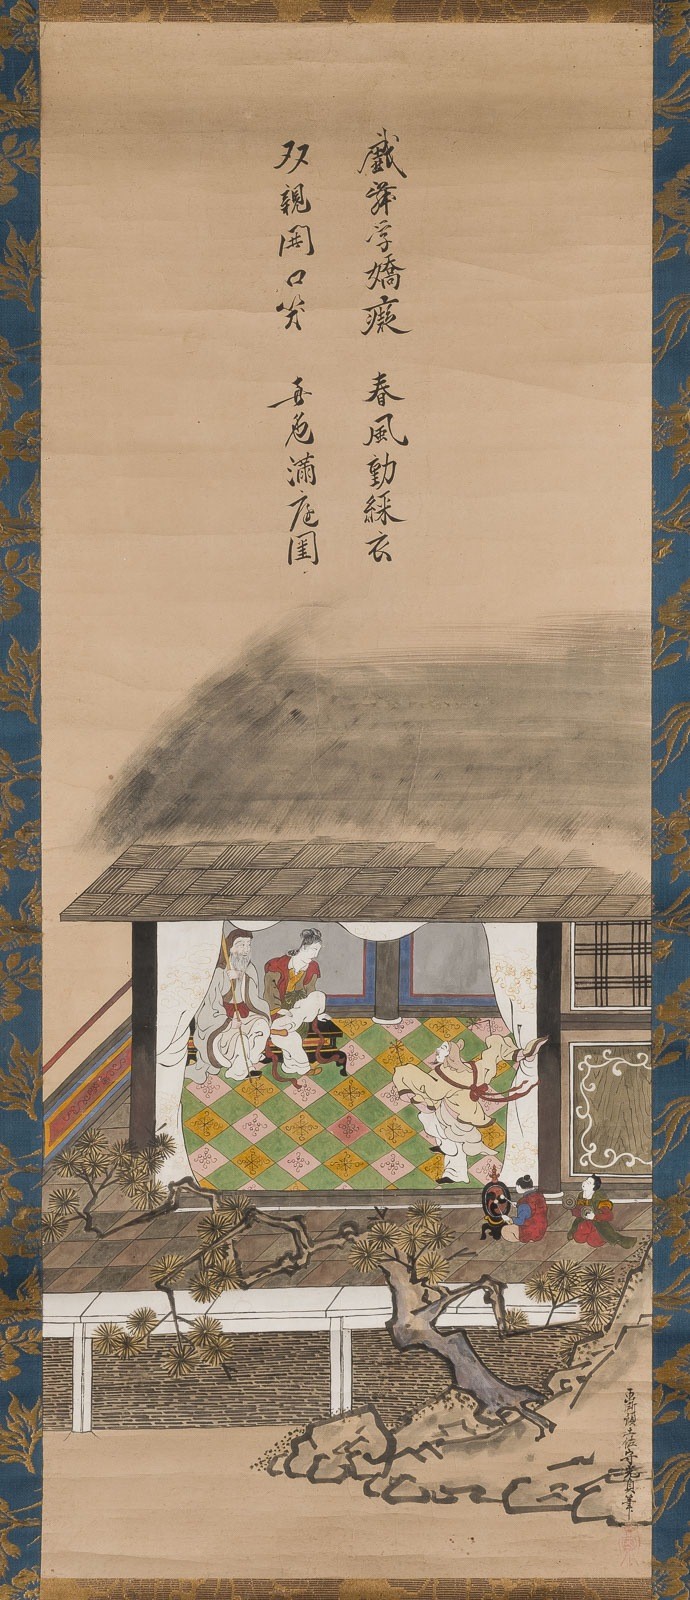 戯舞学嬌癡 春風動綵衣
双親開口笑 喜色満庭闈
土佐守光貞筆